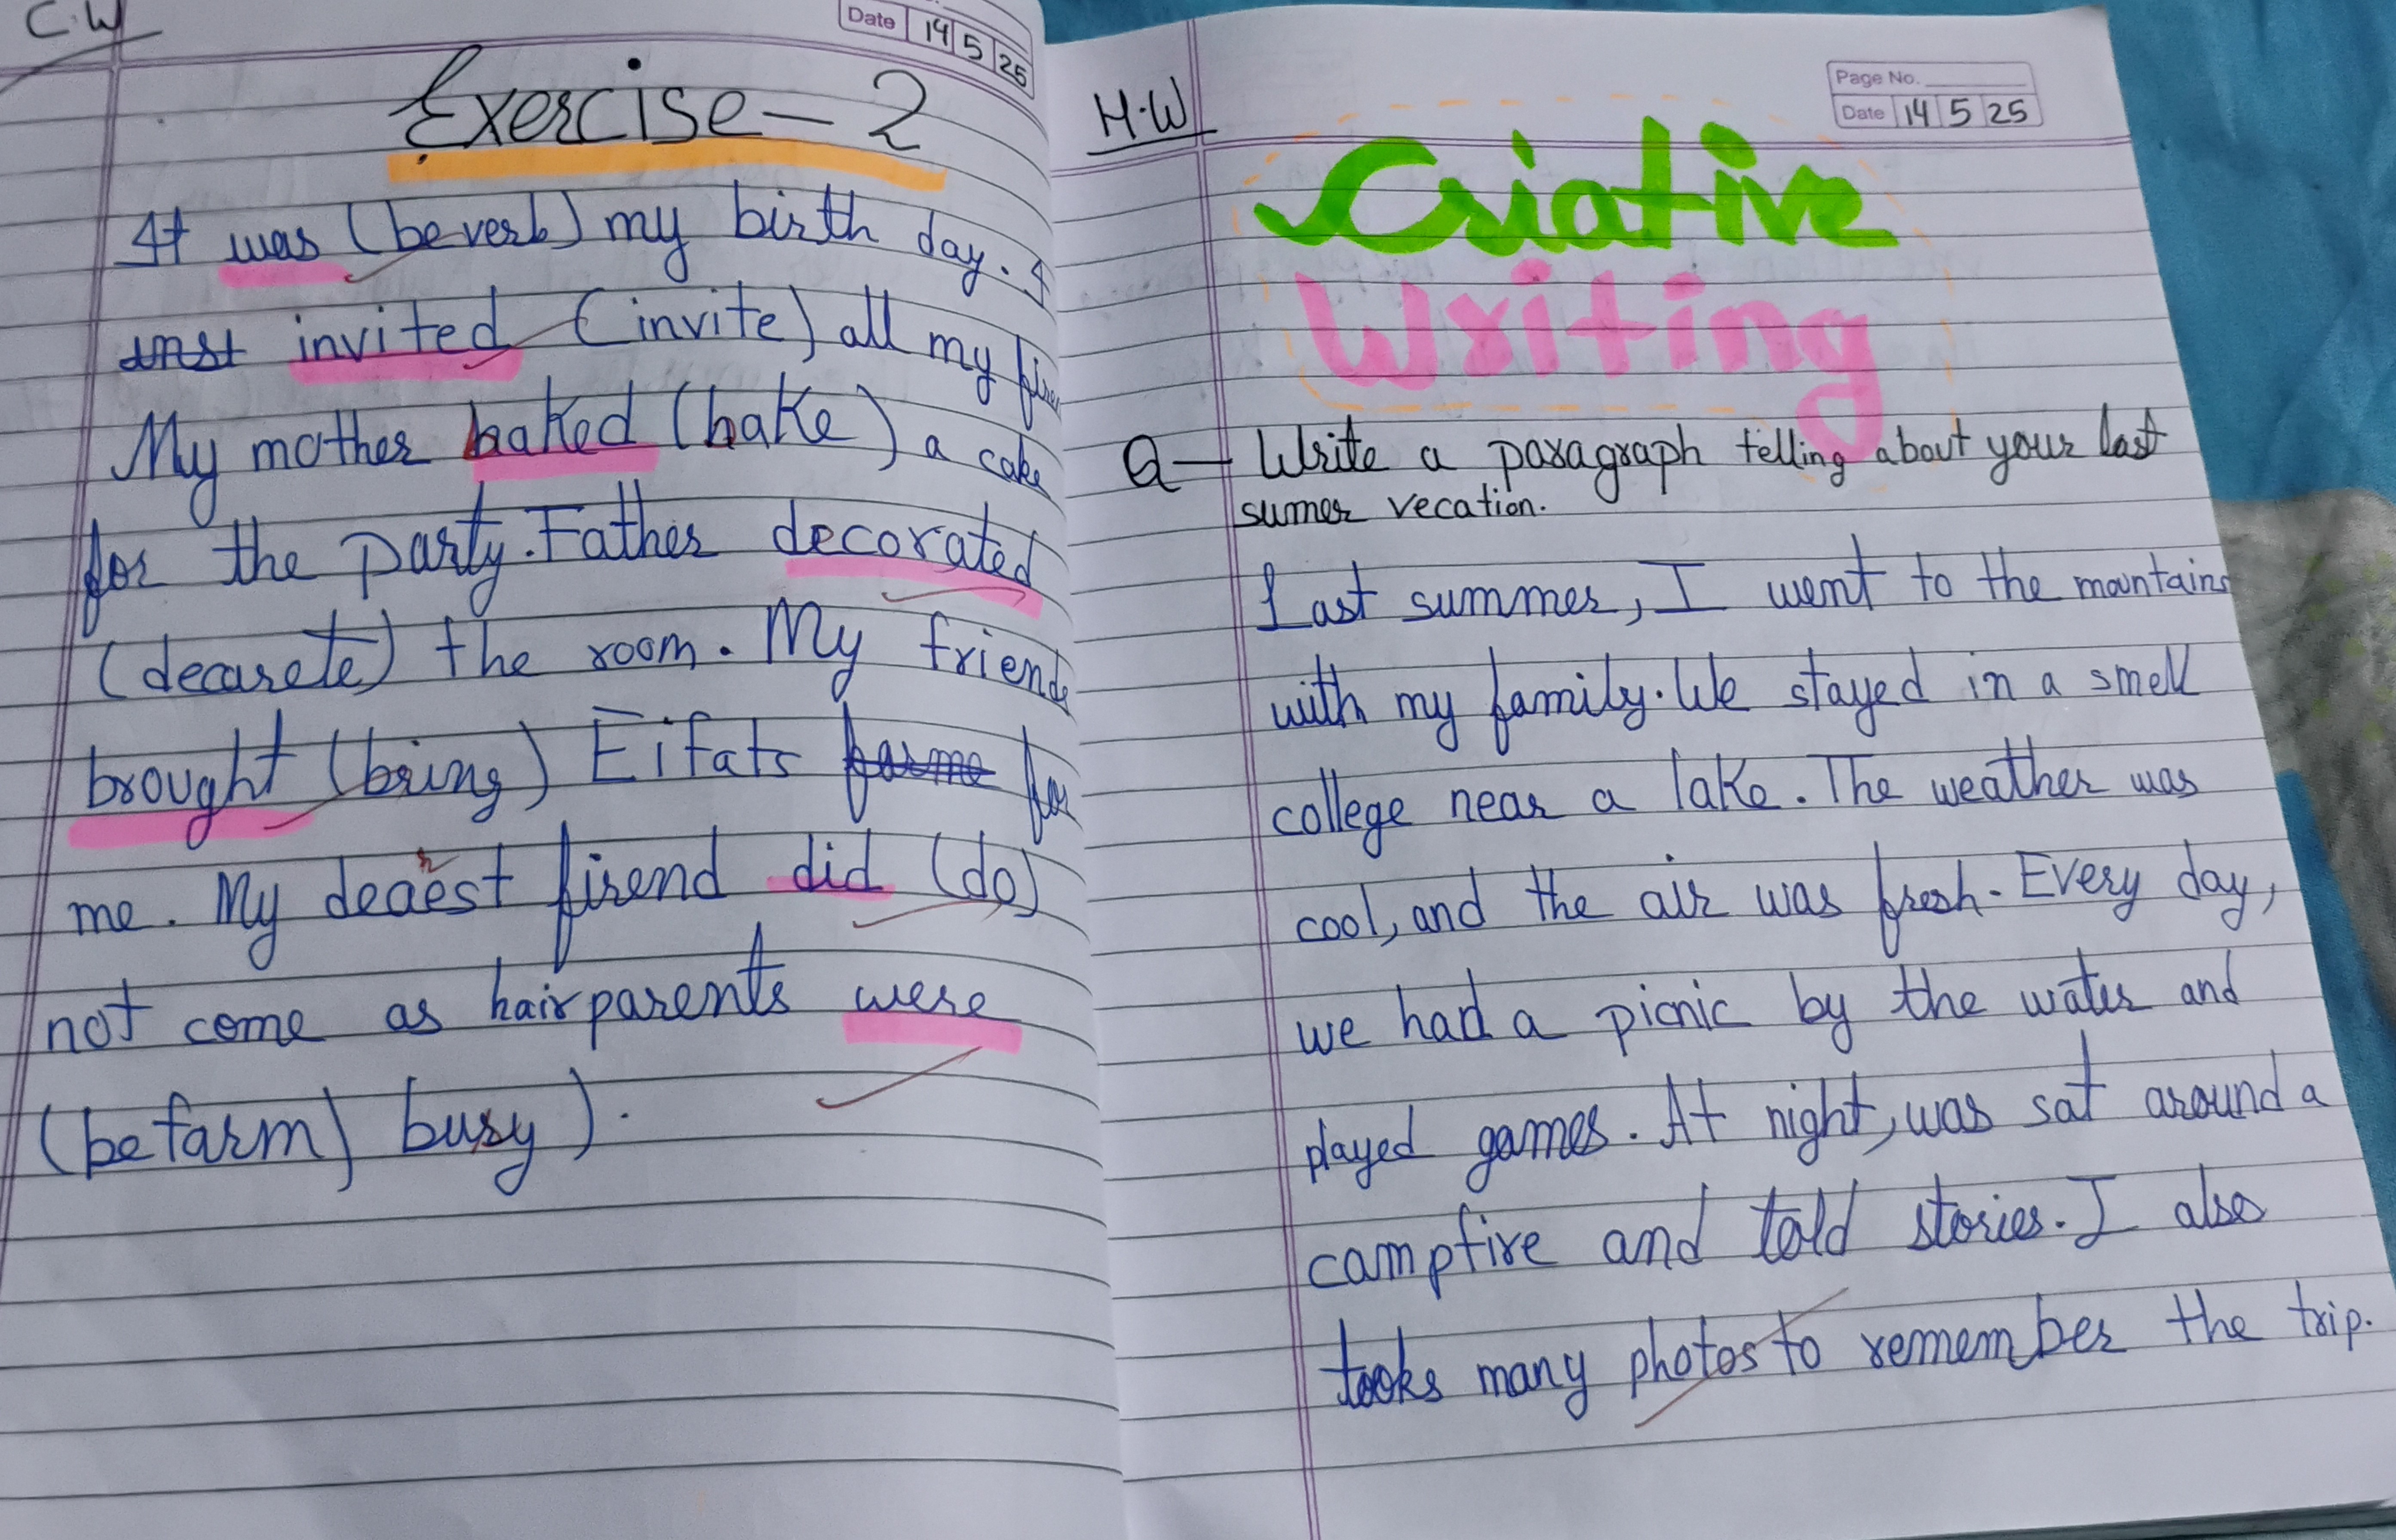 C.W
Date 14 5 25
Exercise - 2
It was (be verb) my birth day. I
invited (invite) all my
My mother baked (bake) a cake
for the party. Father decorated
(decarete) the room. My friends
brought (bring) Eifats for
me. My dearest firend did (do)
not come as hair parents were
(be farm) busy).
H.W
Page No.
Date 14 5 25
Criative
Writing
Q- Write a paragraph telling about your last
sumer vecation.
Last summer, I went to the mountains
with my family. We stayed in a smell
college near a lake. The weather was
cool, and the air was fresh. Every day,
we had a picnic by the water and
played games. At night, was sat around a
campfire and told stories. I also
tooks many photos to remember the trip.